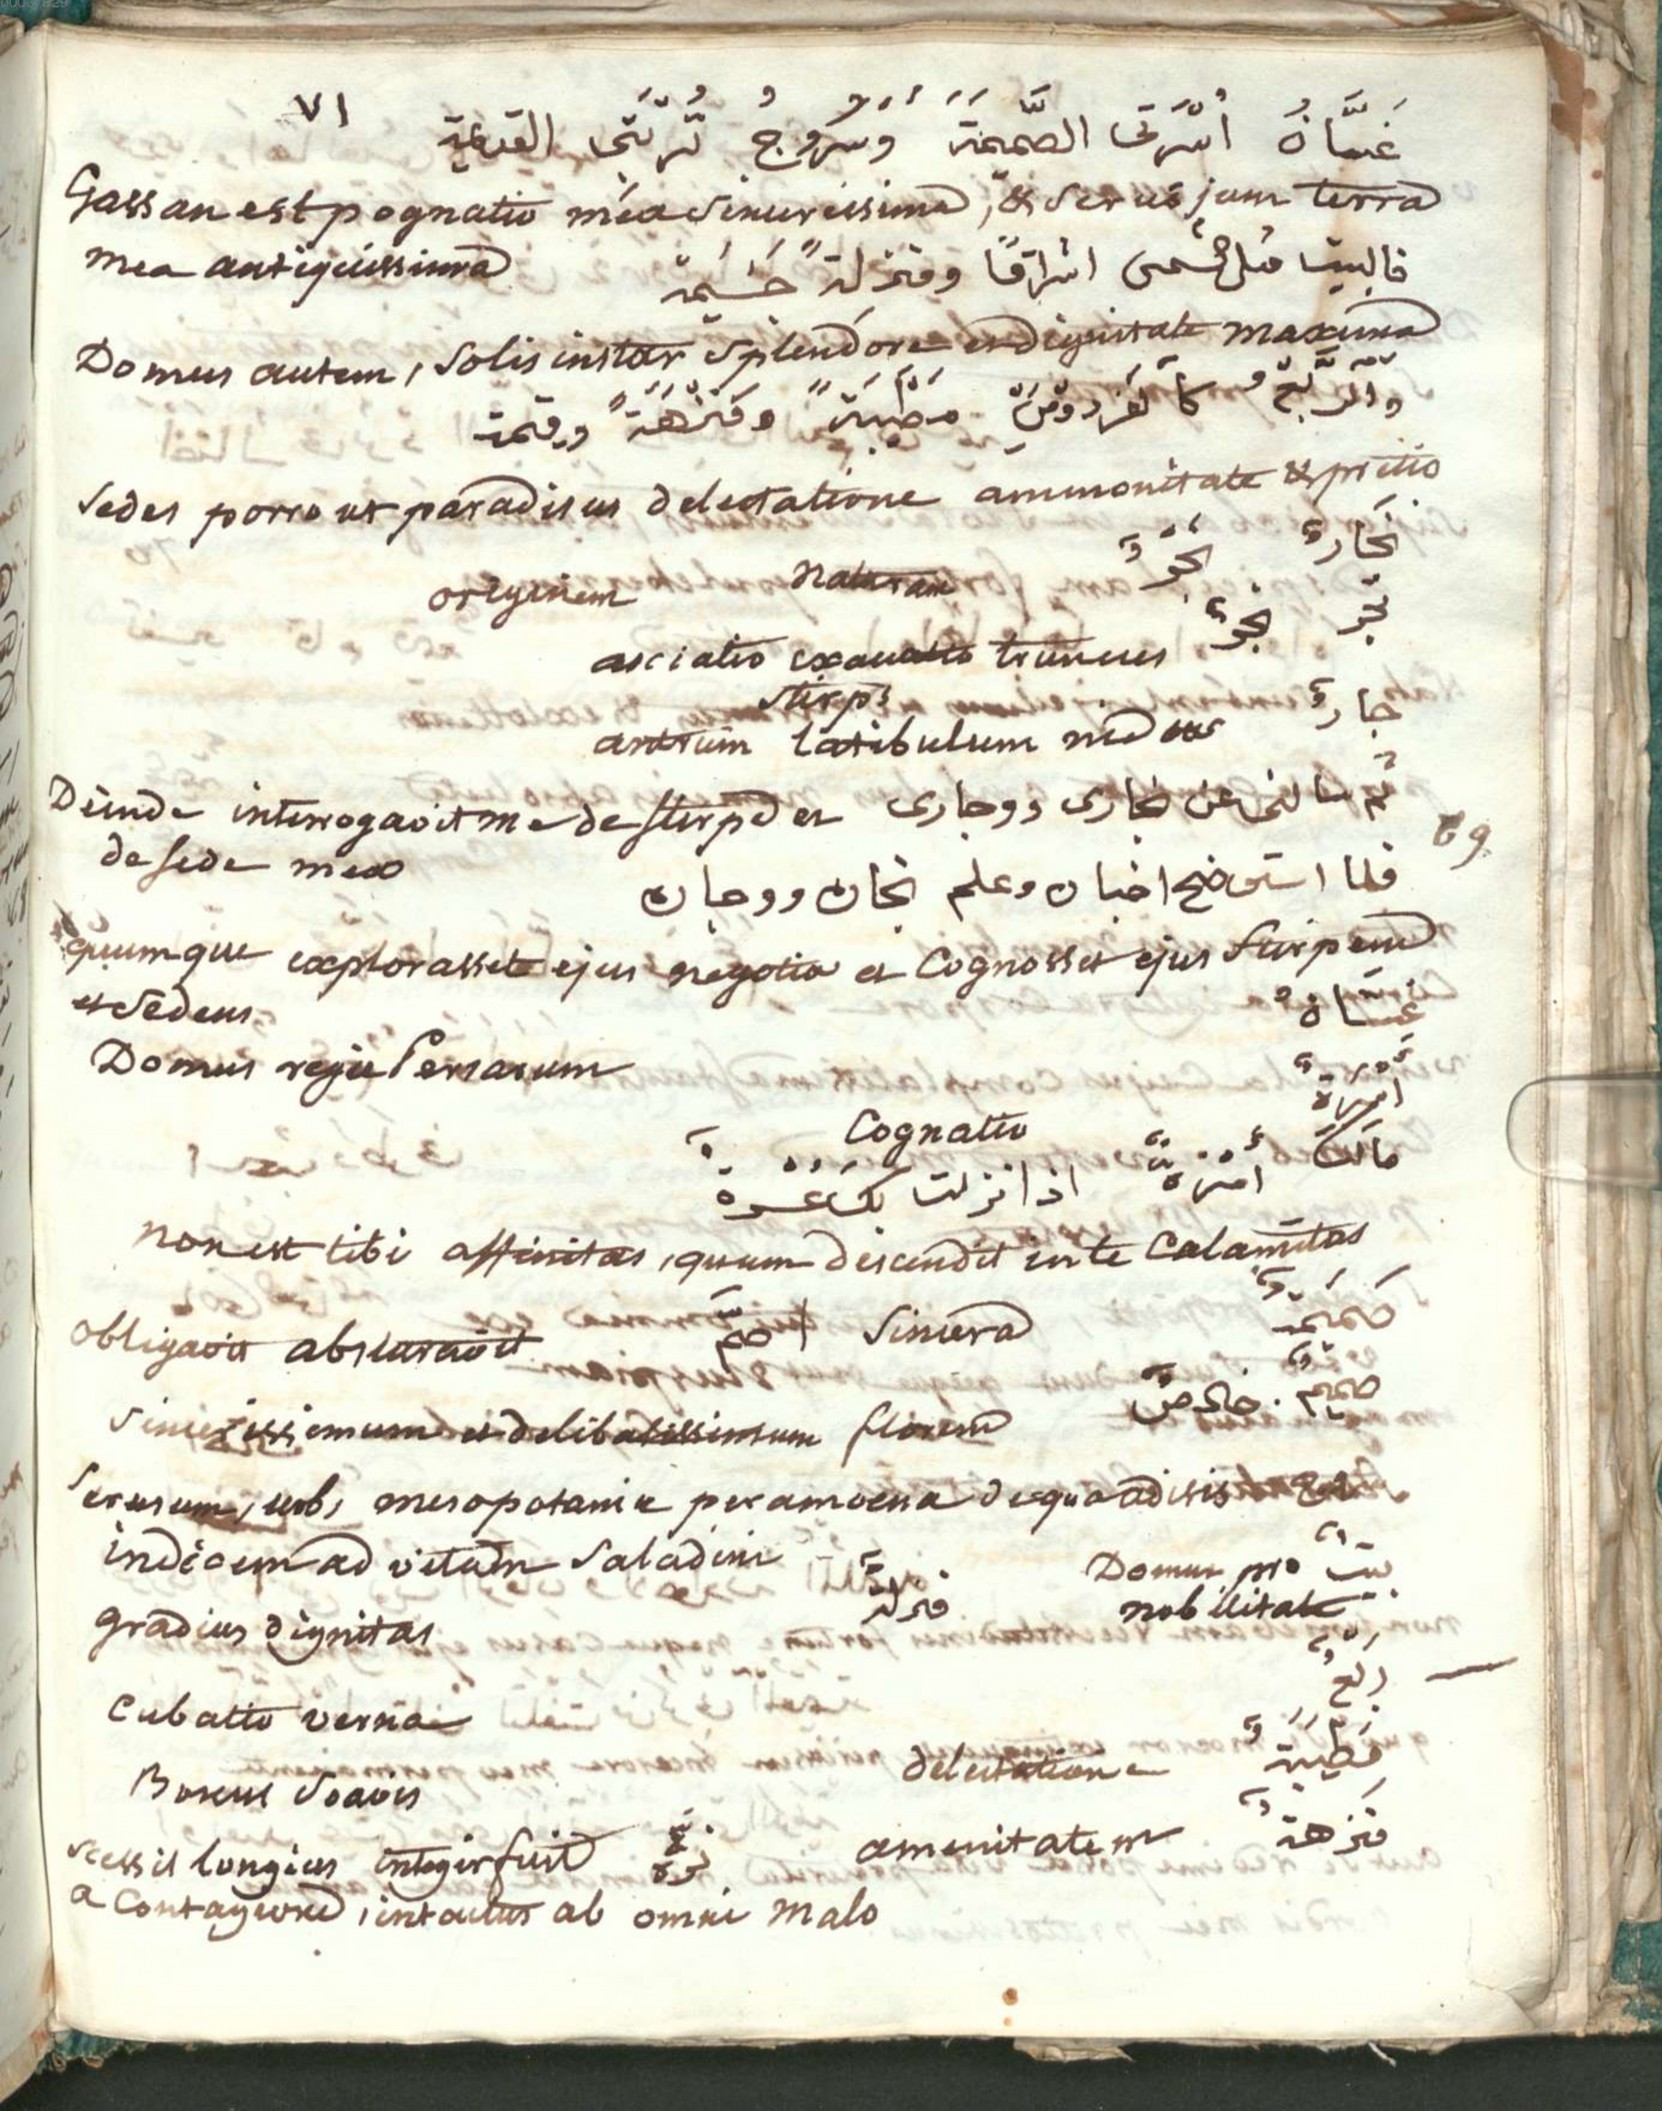 ٧١
غَسَّانُ أُسْرَتى الصَّمِيمَةَ وَسَرُوجُ تُرْبَتِى القديمة
Gassan est pognatio mea sincerissima, & Serug jam terra
mea antiquissima
فالبيت مثل الشمس اشراقًا ومنزلةً جَسِيمة
Domus autem, solis instar splendore et dignitate maxima
والرَّبْعُ كالفردوس مَطْيَبَةً ومَنْزَهَةً وقيمة
Sedes porro ut paradisus delectatione ammonitate & pretio
نَجَارٌ نَجْرٌ
originem naturam
نجر نجرٌ
asciatio exauatio truncus
stirps
جارٌ
antrum latibulum nidus
ثم سالنى عن نجارى ووجارى
Deinde interrogavit me de stirpe et
69
de sede mea
فلما استوضح اخبارى وعلم نجارى ووجارى
quumque explorasset ejus negotia et Cognosset ejus Stirpem
et Sedem
غسّانُ
Domus regie Persarum
أُسْرَةٌ
Cognatio
مالك أُسْرَةٌ اذا نزلت بك عُسْرةٌ
non est tibi affinitas, quum descendit in te Calamitas
صَمِيمَةٌ
Sincera صَمَّ
obligavit absturavit
صميمٌ . خالصٌ
Sincerissimum et delibatissimum florem
Serusum, urbs mesopotamie peramoena de qua adisis
indicem ad vitam Saladini
بيتٌ Domus pro
nobilitate
منزلةٌ
gradus dignitas
رَبْعٌ
Cubatio verna
مَطْيَبَةٌ
delectatione
Boscus Soavis
مَنزهةٌ
amenitatem
نزه
scessit longius integer fuit
a Contagione, intactus ab omni malo